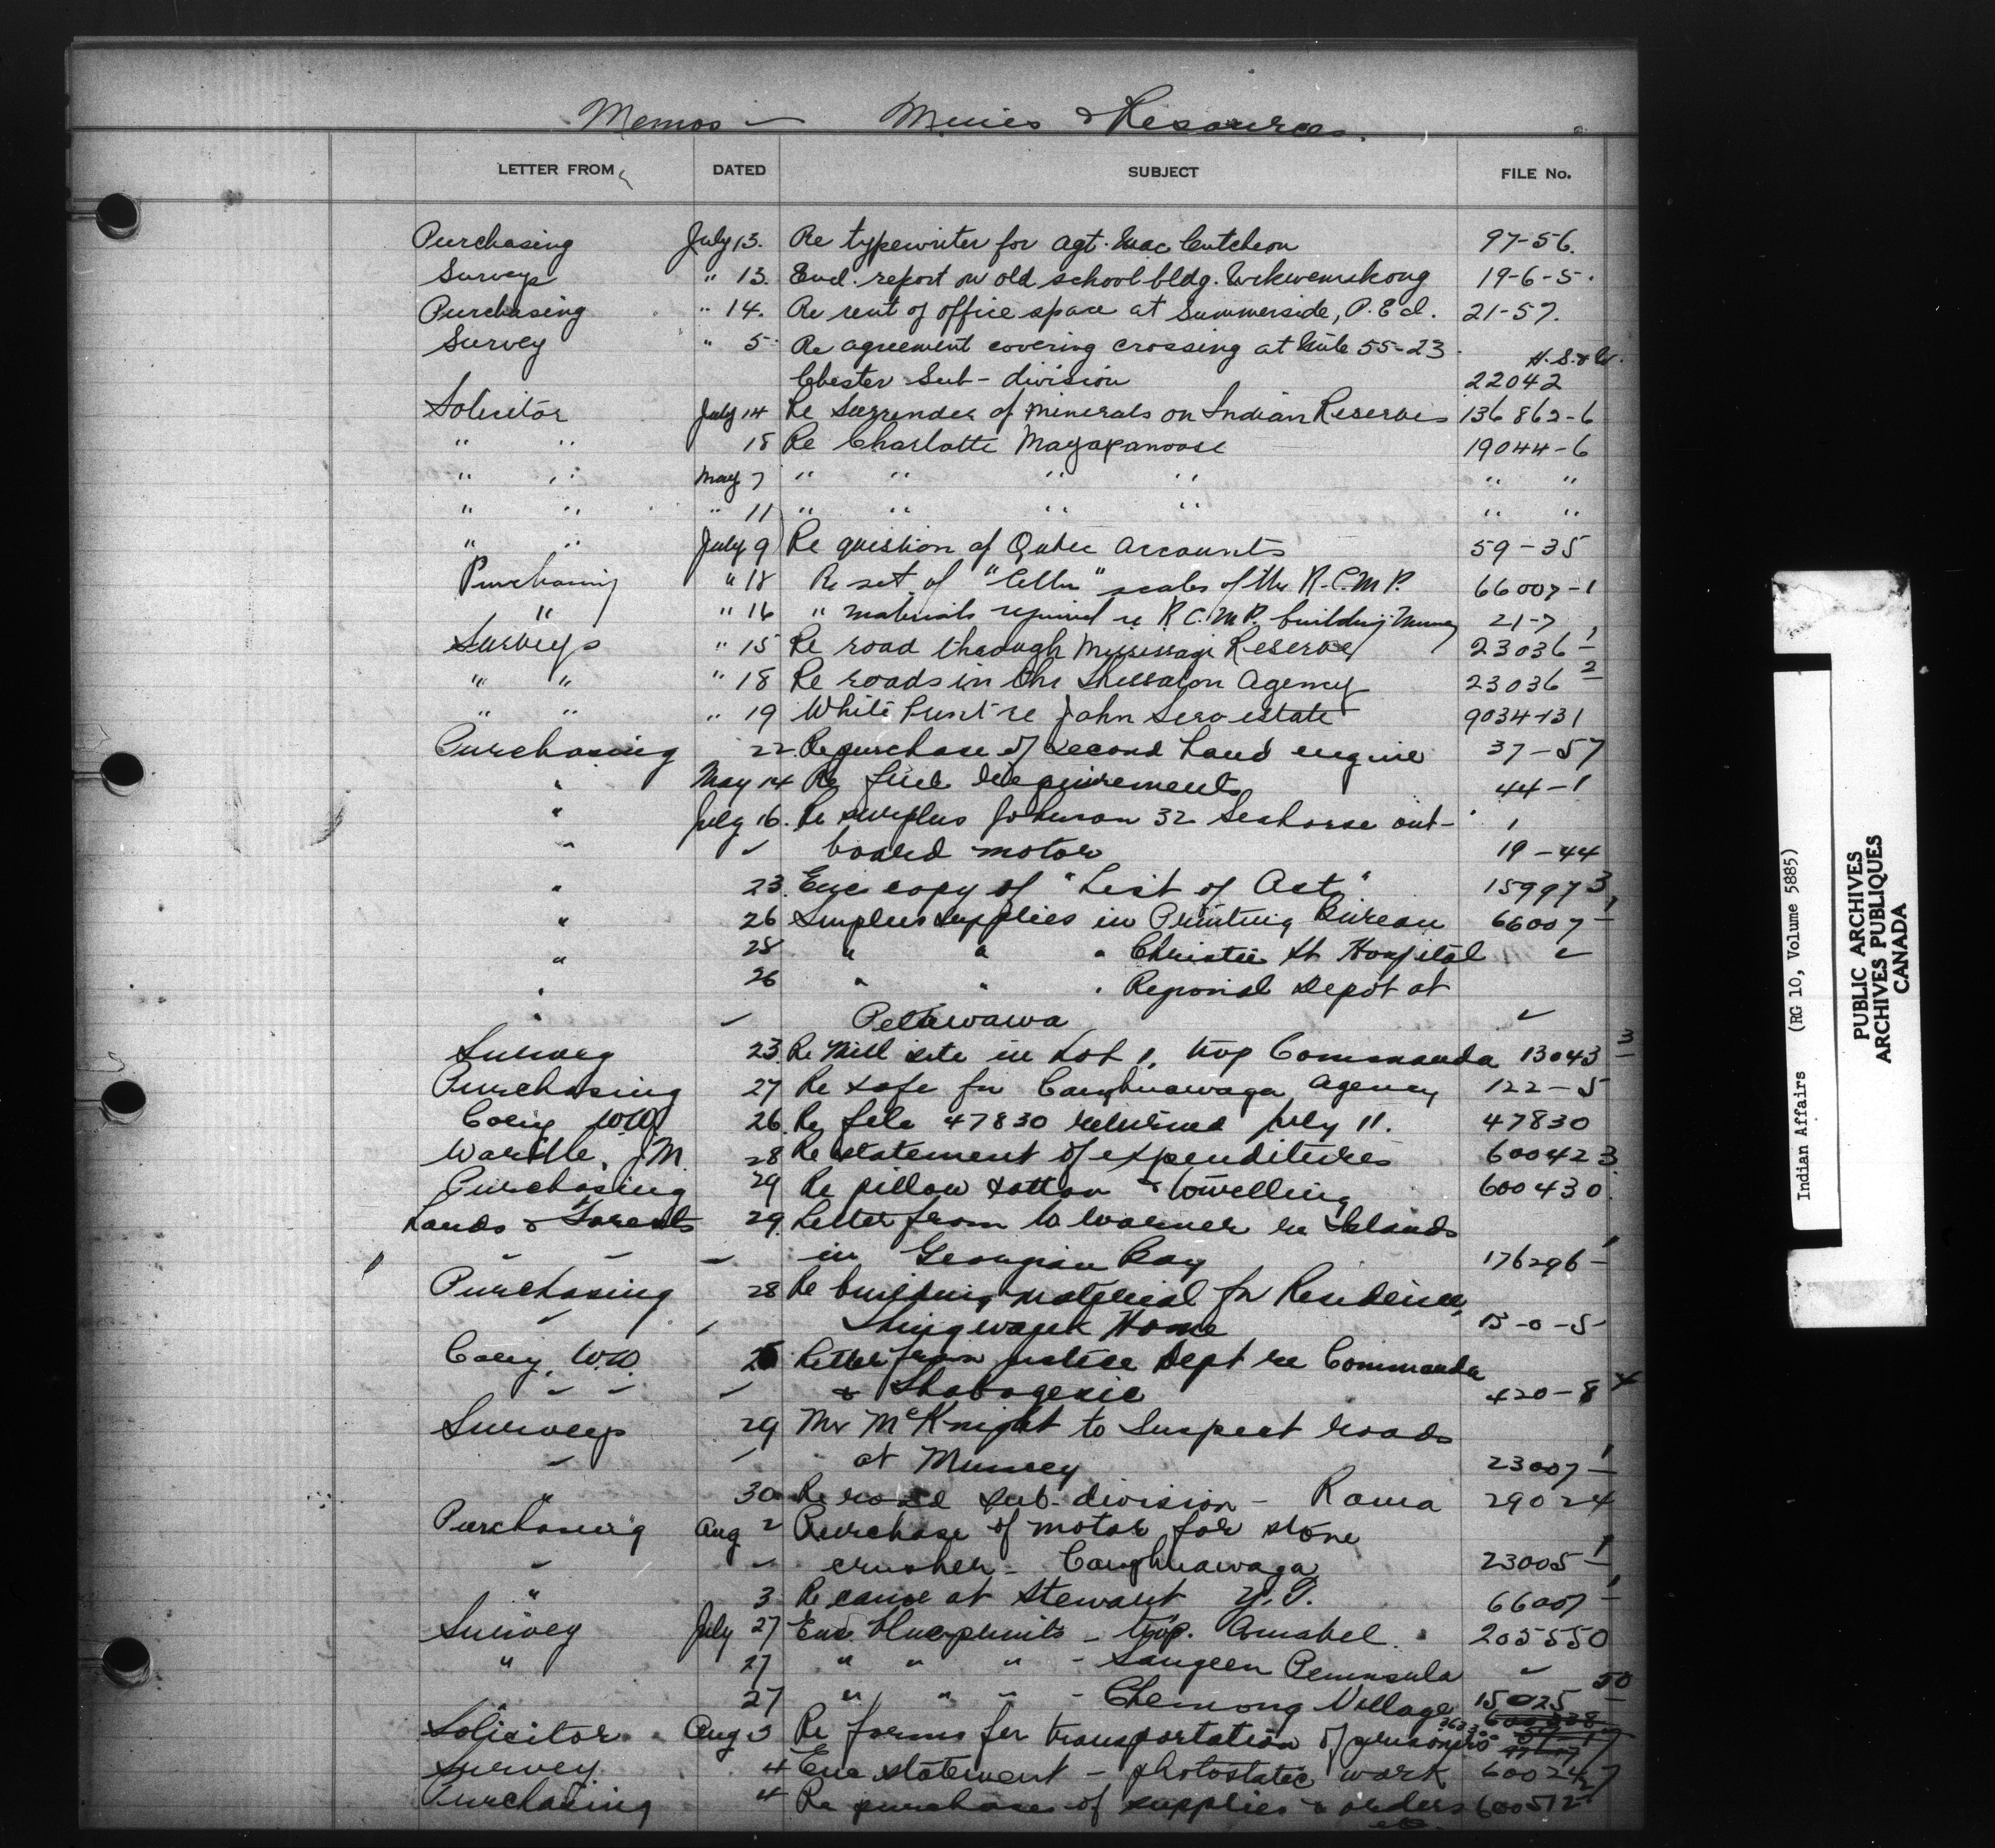 Memos — Mines & Resources.
LETTER FROM DATED SUBJECT FILE No.
Purchasing July 13. Re typewriter for Agt. MacCutcheon 97-56.
Surveys " 13. Encl. report on old school bldg. Wikwemikong 19-6-5.
Purchasing " 14. Re rent of office space at Summerside, P.E.I. 21-57.
Survey " 5 Re agreement covering crossing at Mile 55-23 H.S.&W.
Chester Sub-division 22042
Solicitor July 14 Re Surrender of minerals on Indian Reserves 136862-6
" " 18 Re Charlotte 19044-6
" " May 7 " " " " " "
" " " 11 " " " " " "
" " July 9 Re question of Quebec Accounts 59-35
Purchasing " 18 Re set of " " scales of the R.C.M.P. 66007-1
" " 16 " materials required re R.C.M.P. building Muncey 21-7
Surveys " 15 Re road through Mississagi Reserve 23036-1
" " " 18 Re roads in the Thessalon Agency 23036-2
" " " 19 White Print re John Sero estate 9034-131
Purchasing 22 Re purchase of second hand engine 37-57
" May 14 Re fuel requirements 44-1
" July 16. Re surplus Johnson 32 Seahorse out- 1
" " board motor 19-44
" 23. Enc copy of "List of Acts" 159973
" 26 Surplus supplies in Printing Bureau 66007-1
" 28 " " " Christie St Hospital "
" 26 " " " Regional Depot at
" " Petawawa "
Survey 23. Re Mill site in Lot 1, twp Commanda 13043-3
Purchasing 27 Re safe for Caughnawaga Agency 122-5
Cory WW 26. Re file 47830 returned July 11. 47830
Wardle, J.M. 28 Re statement of expenditures 600423
Purchasing 29 Re pillow cotton & towelling 600430
Lands & Forests 29. Letter from W Warner re Islands
" " " in Georgian Bay 176296-1
Purchasing 28 Re building material for Residence,
" " Shingwauk Home 13-0-5
Cory, W.W. Letter from Justice Dept re Commanda
" " " & 420-8-4
Surveys 29 Mr McKnight to Inspect roads
" " at Muncey 23007-1
" 30 Re road sub-division - Rama 29024
Purchasing Aug 2 Purchase of motor for stone
" " crusher - Caughnawaga 23005-1
" 3 Re canoe at Stewart Y.T. 66007-1
Survey July 27 Enc. blueprints - twp. Amabel. 205550
" 27 " " " - Saugeen Peninsula "
27 " " " - Chemong Village 15025-50
Solicitor Aug 3 Re forms for transportation of prisoners
Survey 4 Enc statement - photostatic work 600247
Purchasing 4 Re purchases of supplies & orders 600512
etc.
Indian Affairs (RG 10, Volume 5885)
PUBLIC ARCHIVES
ARCHIVES PUBLIQUES
CANADA